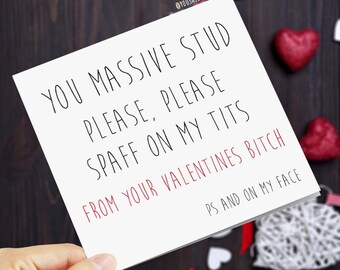 YOU MASSIVE STUD
PLEASE, PLEASE
SPAFF ON MY TITS
FROM YOUR VALENTINES BITCH
PS AND ON MY FACE